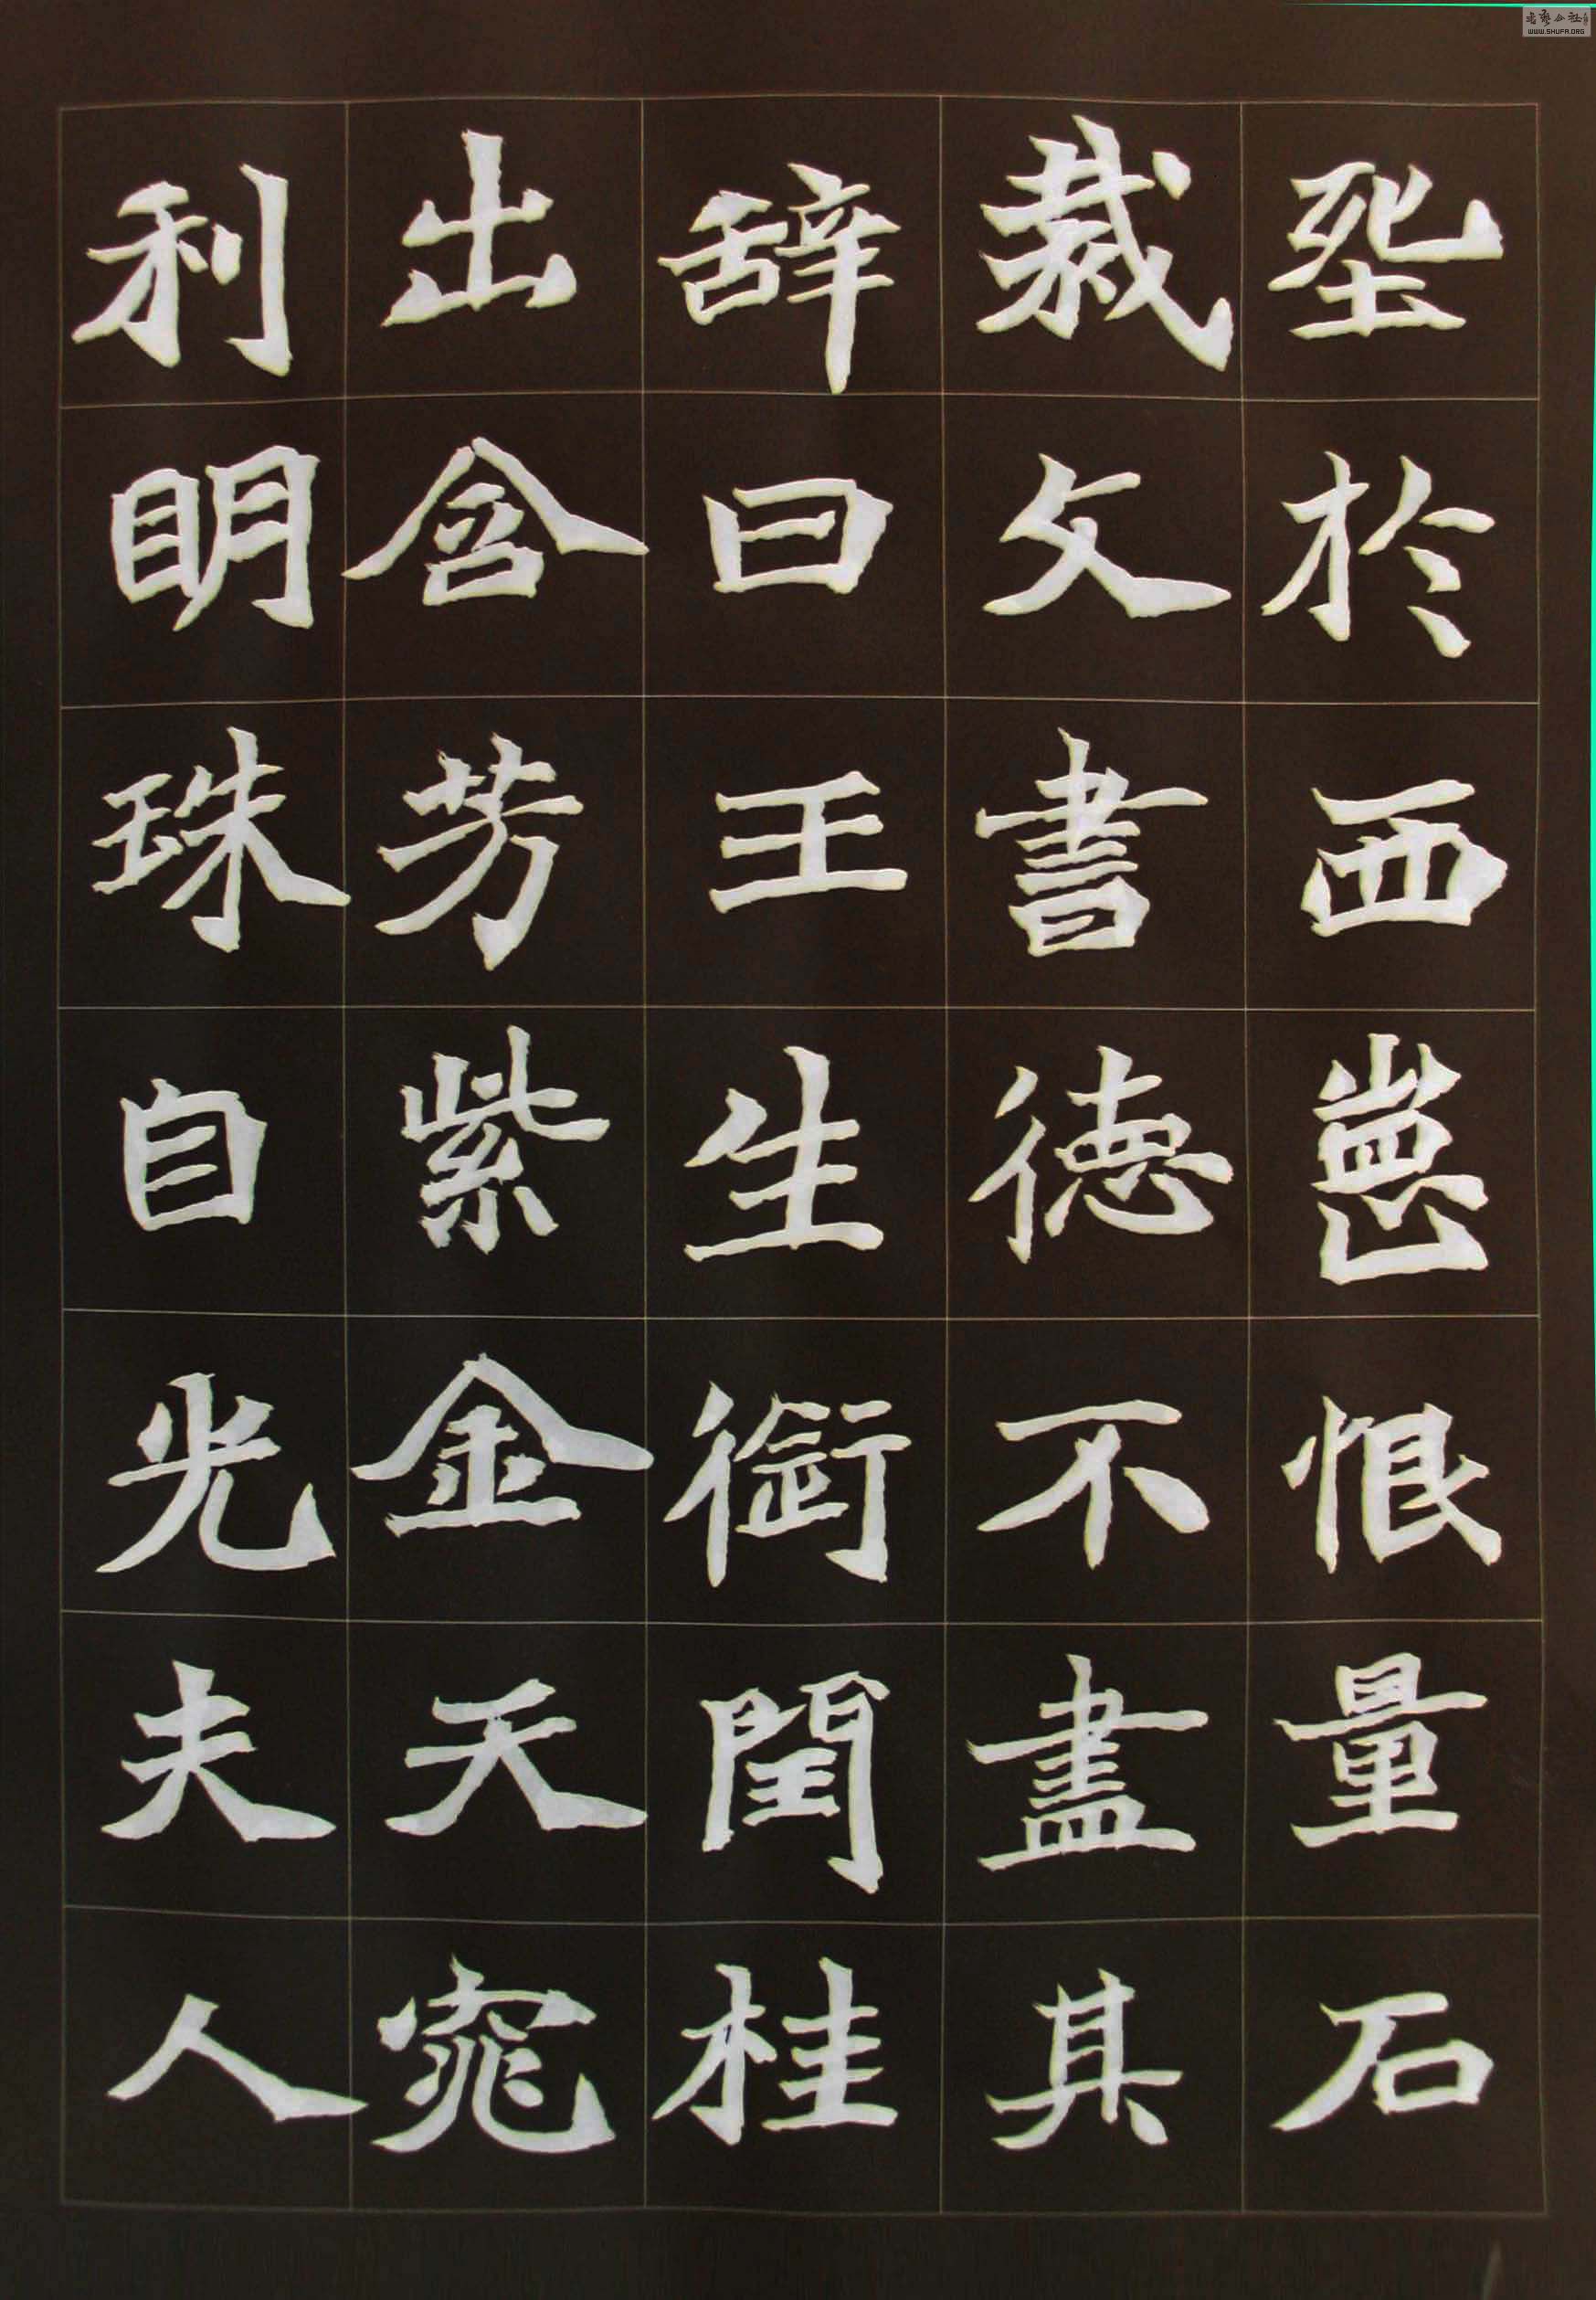 於西恨量石
裁文書德不盡其
辞曰王生銜閏桂
出含芳紫金天窕
利明珠自光夫人
WWW.SHUFA.ORG